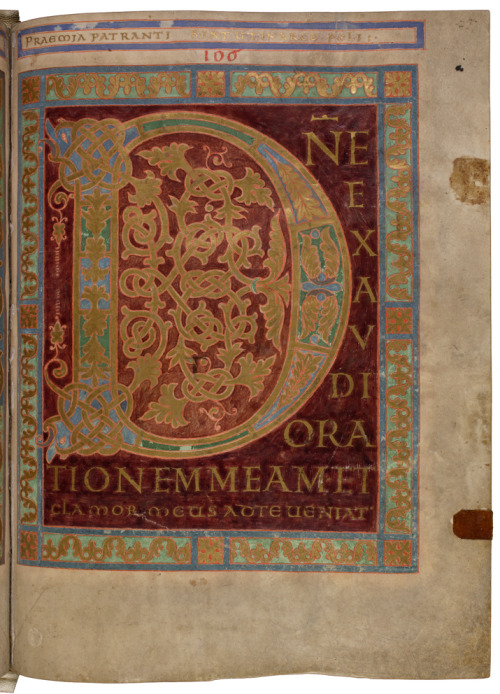 PRAEMIA PATRANTI
106
D N̄E
E
X
A
V
DI
ORA
TIONEMMEAMET
CLAMOR MEUS ADTEUENIAT